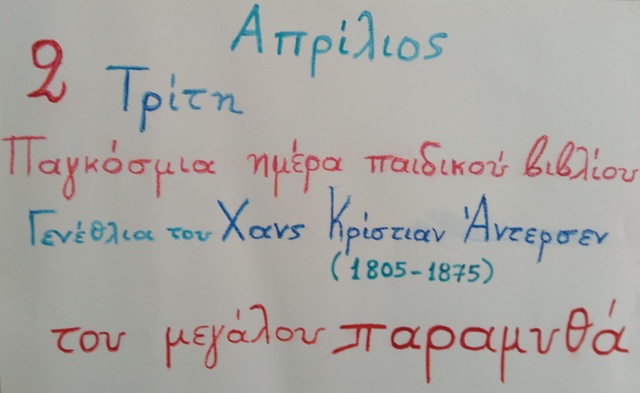 Απρίλιος
2 Τρίτη
Παγκόσμια ημέρα παιδικού βιβλίου
Γενέθλια του Χανς Κρίστιαν Άντερσεν
(1805-1875)
του μεγάλου παραμυθά